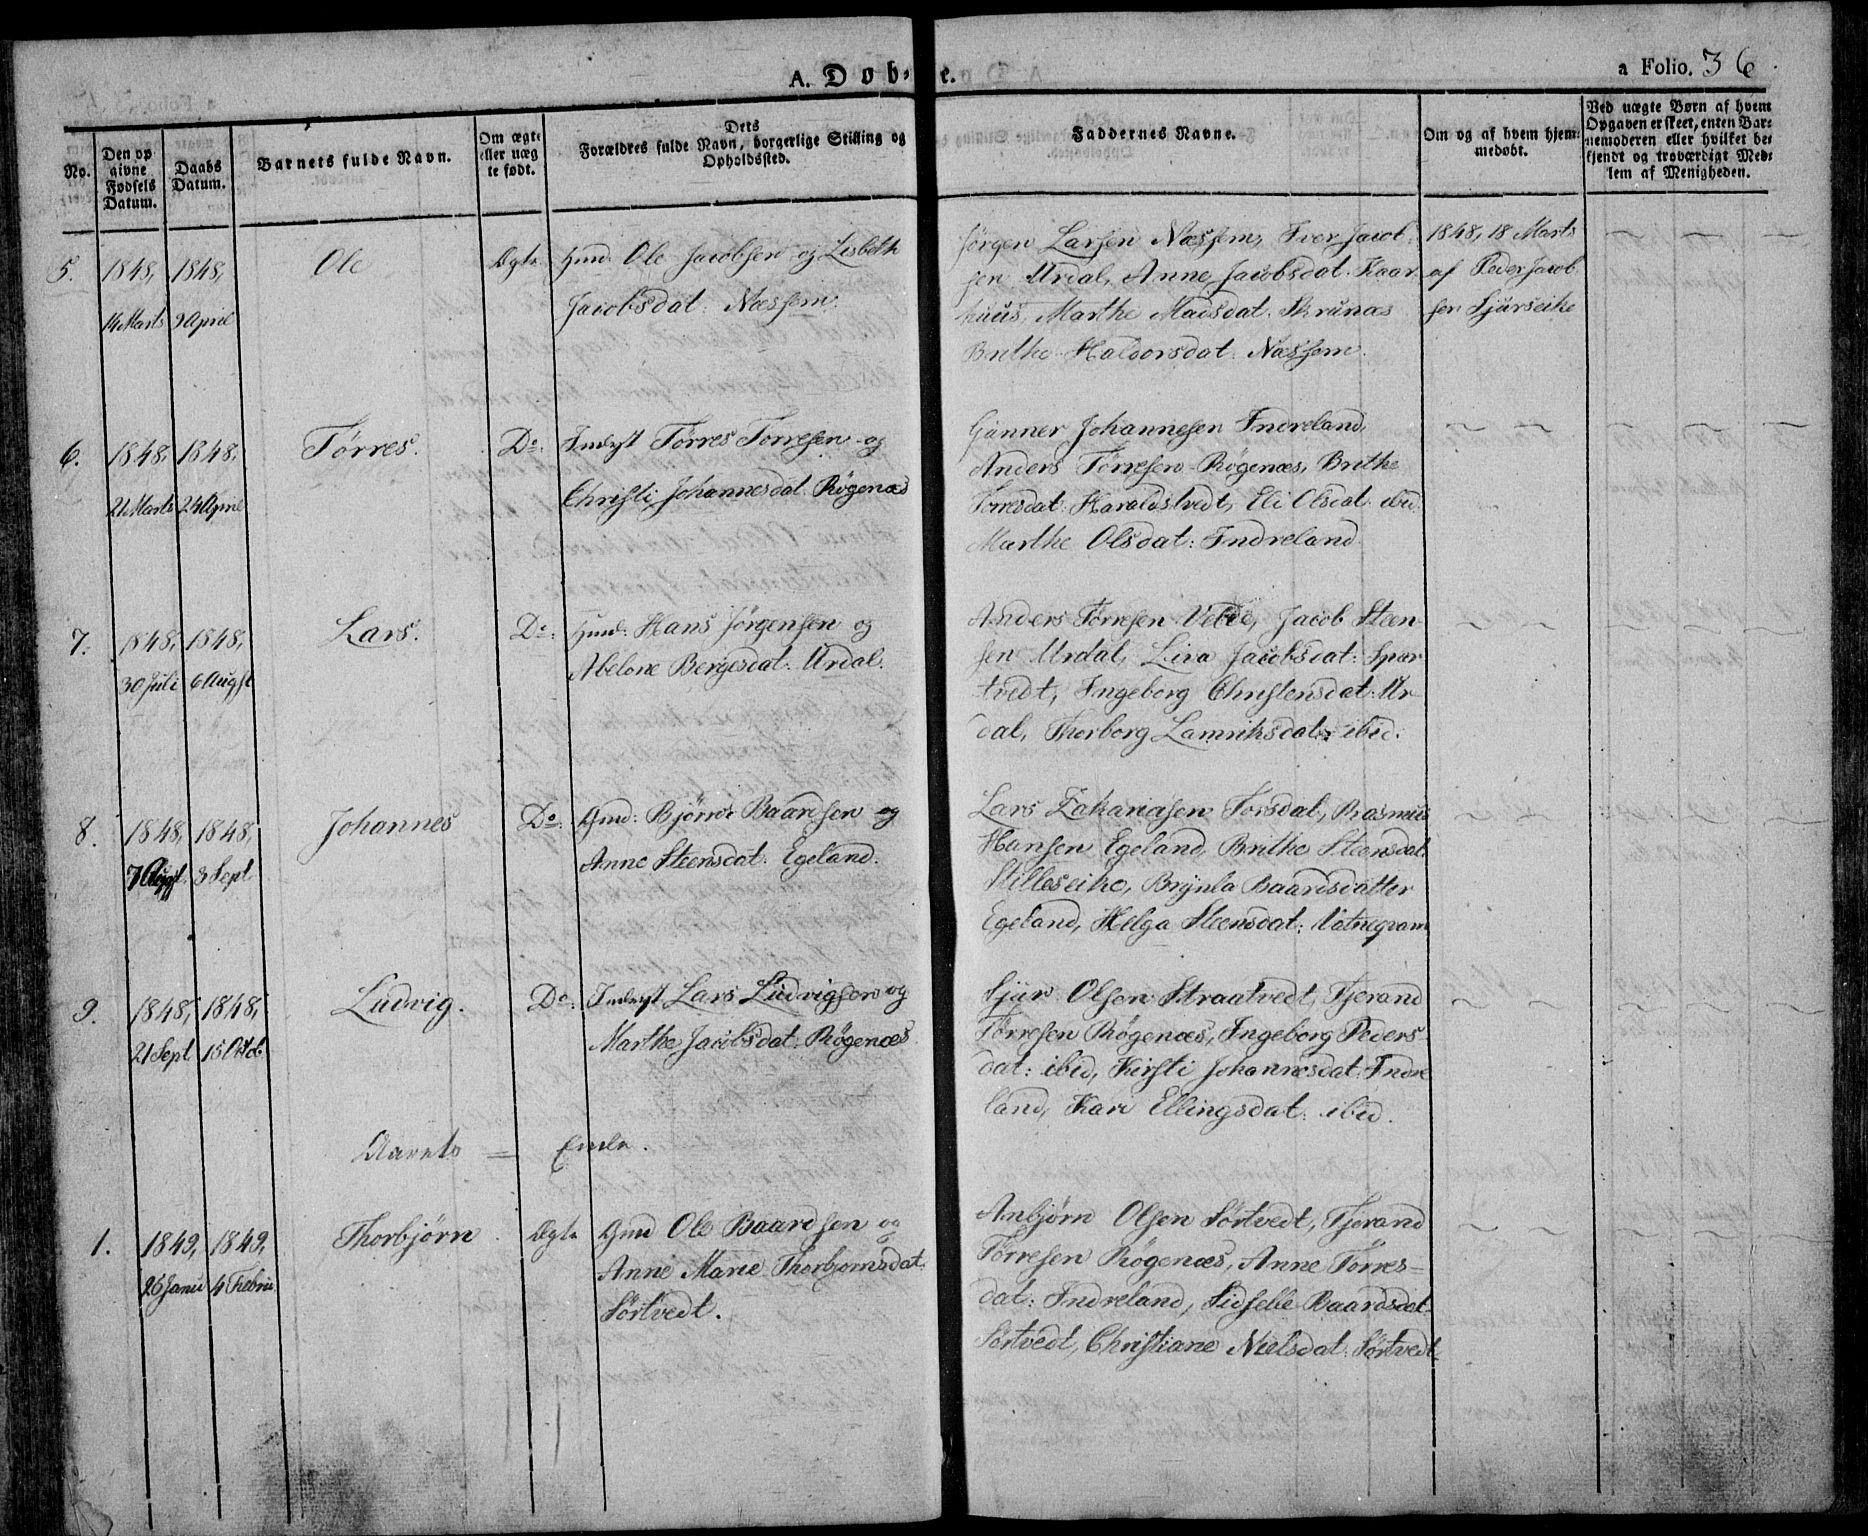 A. Døb- e.
a Folio. 36
No.
Den op
givne
Fødsels
Datum.
Daabs
Datum.
Barnets fulde Navn.
Om ægte
eller uæg
te født.
Dets
Forældres fulde Navn, borgerlige Stilling og
Opholdssted.
Faddernes Navne.
Om og af hvem hjem-
medøbt.
Ved uægte Børn af hvem
Opgaven er skeet, enten Bar-
nemoderen eller hvilket be-
kjendt og troværdigt Med-
lem af Menigheden.
5. 1848, 1848, Ole Ægte Gmd. Ole Jacobsen og Lisbeth
14 Marts 9 April Jacobsdat. Næssem.
Jørgen Larsen Næssem, Iver Jacob-
sen Urdal, Anne Jacobsdat. Kaar-
huus, Marthe Madsdat. Skrunæs
Brithe Haldorsdat. Næssem.
1848, 18 Marts
af Peder Jacob
sen Sjurseike
6. 1848, 1848, Tørres. Do. Inderst Tørres Tørresen og
21 Marts 24 April Christi Johannesdat. Røgenæs
Gunner Johannesen Indreland,
Anders Tørresen Røgenæs, Brithe
Torresdat. Haraldstvedt, Eli Olsdat. ibid.
Marthe Olsdat: Indreland
7. 1848, 1848, Lars. Do: Gmd: Hans Jørgensen og
30 Juli 6 Augst Abelone Bergesdat. Urdal.
Anders Tørresen Vetde, Jacob Steen-
sen Urdal, Liva Jacobsdat: Spær-
tvedt, Ingeborg Christensdat: Ur-
dal, Thorborg Lamriksdat: ibid.
8. 1848, 1848, Johannes Do: Gmd: Bjørn Baardsen og
7 Augst. 3 Sept Anne Steensdat. Egeland.
Lars Zakariasen Torsdal, Rasmus
Hansen Egeland, Brithe Steensdat
Stilleseike, Brynla Baardsdatter
Egeland, Helga Steensdat: Vatnegram
9. 1848, 1848, Ludvig. Do: Inderst Lars Ludvigsen og
21 Sept 15 Octob Marthe Jacobsdat: Røgenæs
Sjur Olsen Straatvedt, Tjerand
Tørresen Røgenæs, Ingeborg Peders-
dat: ibid, Kirsti Johannesdat: Indre
land, Kari Ellingsdat: ibid.
Aarets = Ende.
1. 1849, 1849, Thorbjørn Ægte Gmd Ole Baardsen og
26 Janu 4 Febru Anne Marie Thorbjornsdat.
Sørtvedt.
Anbjørn Olsen Sørtvedt, Tjerand
Tørresen Røgenæs, Anne Tørres-
dat: Indreland, Sidselle Baardsdat
Sørtvedt, Christiane Nielsdat: Sørtvedt.